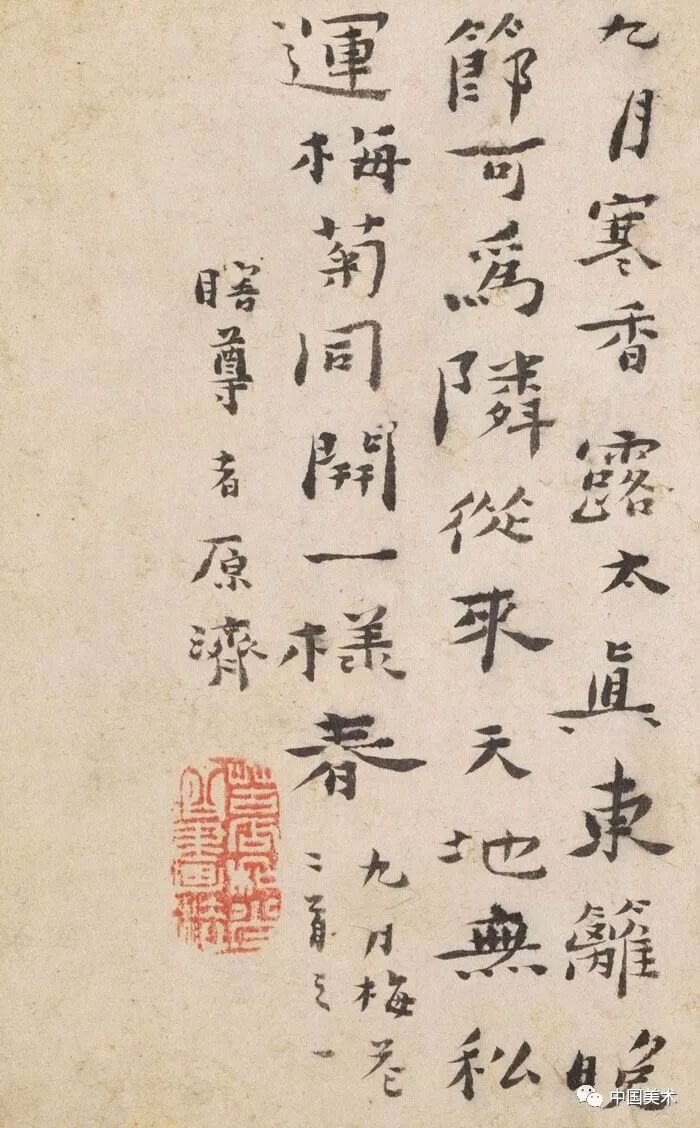 九月寒香露太眞東籬晚
節可爲隣從來天地無私
運梅菊同開一樣春
九月梅花
二首之一
瞎尊者原濟
中国美术